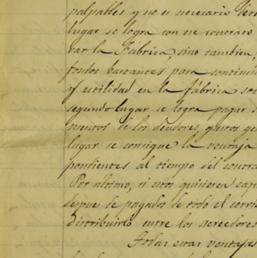 palpables y no es necesario
lugar se logra con un contrato
var la Fabrica, sino tambien,
fondos bastantes para continuar
y utilidad en la fábrica
segundo lugar se logra pagar
mentos de los deudores, que
lugar se consigue la ventaja
pondientes al tiempo del contra
Por ultimo, si estos quisieren cap
despues de pagados de todo el corri
distribuirlo entre los acreedores
Todas estas ventajas